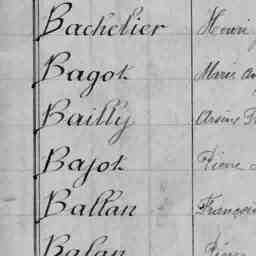 Bachelier Henri
Bagot Marie
Bailly Arsène
Bajot Pierre
Ballan François
Balan